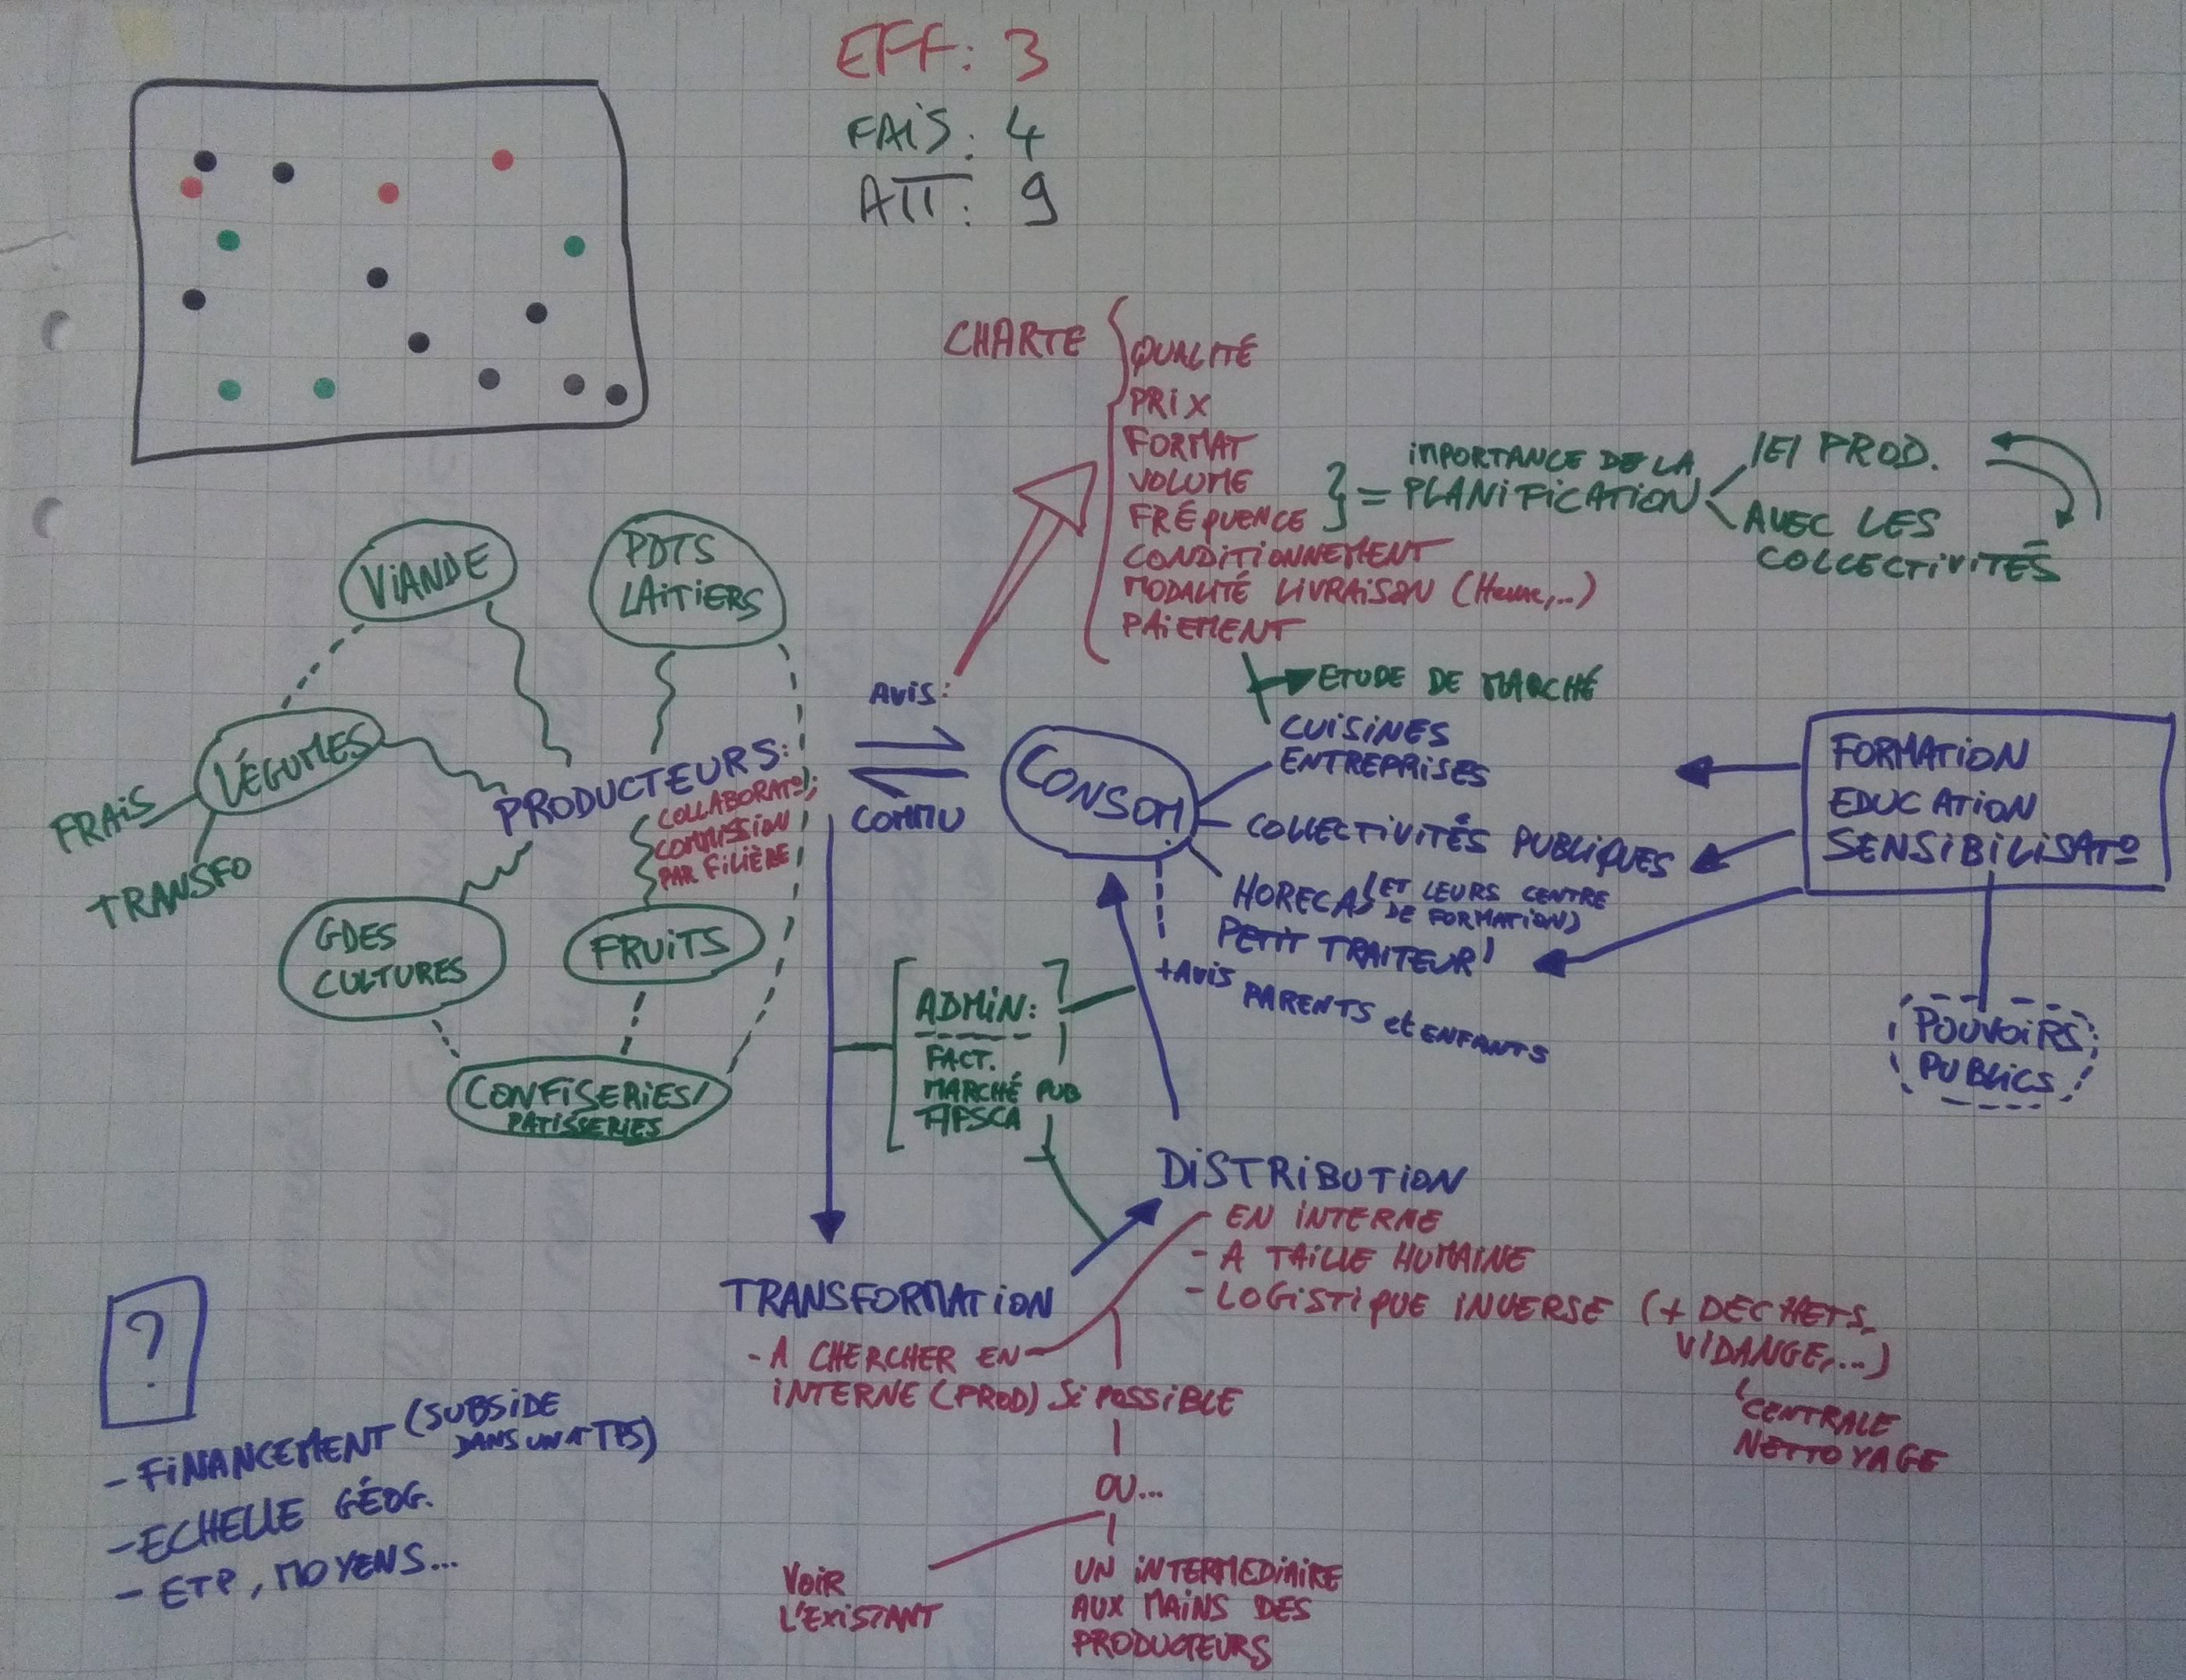 EFF: 3
FAIS: 4
ATT: 9
CHARTE
QUALITÉ
PRIX
FORMAT
VOLUME
FRÉQUENCE
CONDITIONNEMENT
MODALITÉ LIVRAISON (Heure,...)
PAIEMENT
} = IMPORTANCE DE LA
PLANIFICATION
IEI PROD.
AVEC LES
COLLECTIVITÉS
ETUDE DE MARCHÉ
VIANDE
PDTS
LAITIERS
LÉGUMES
FRAIS
TRANSFO
GDES
CULTURES
FRUITS
CONFISERIES/
PATISSERIES
PRODUCTEURS:
COLLABORATº,
COMMISSION
PAR FILIÈRE
AVIS:
COMMU
CONSOM.
CUISINES
ENTREPRISES
COLLECTIVITÉS PUBLIQUES
HORECA (ET LEURS CENTRE
DE FORMATION)
PETIT TRAITEUR
+ AVIS PARENTS et ENFANTS
FORMATION
EDUCATION
SENSIBILISATº
POUVOIRS
PUBLICS
ADMIN:
FACT.
MARCHÉ PUB
AFSCA
DISTRIBUTION
EN INTERNE
- A TAILLE HUMAINE
- LOGISTIQUE INVERSE (+ DECHETS,
VIDANGE,...)
CENTRALE
NETTOYAGE
TRANSFORMATION
- A CHERCHER EN
INTERNE (PROD) Si POSSIBLE
OU...
VOIR
L'EXISTANT
UN INTERMEDIAIRE
AUX MAINS DES
PRODUCTEURS
?
- FINANCEMENT (SUBSIDE
DANS UN 1 TPS)
- ECHELLE GÉOG.
- ETP, MOYENS...